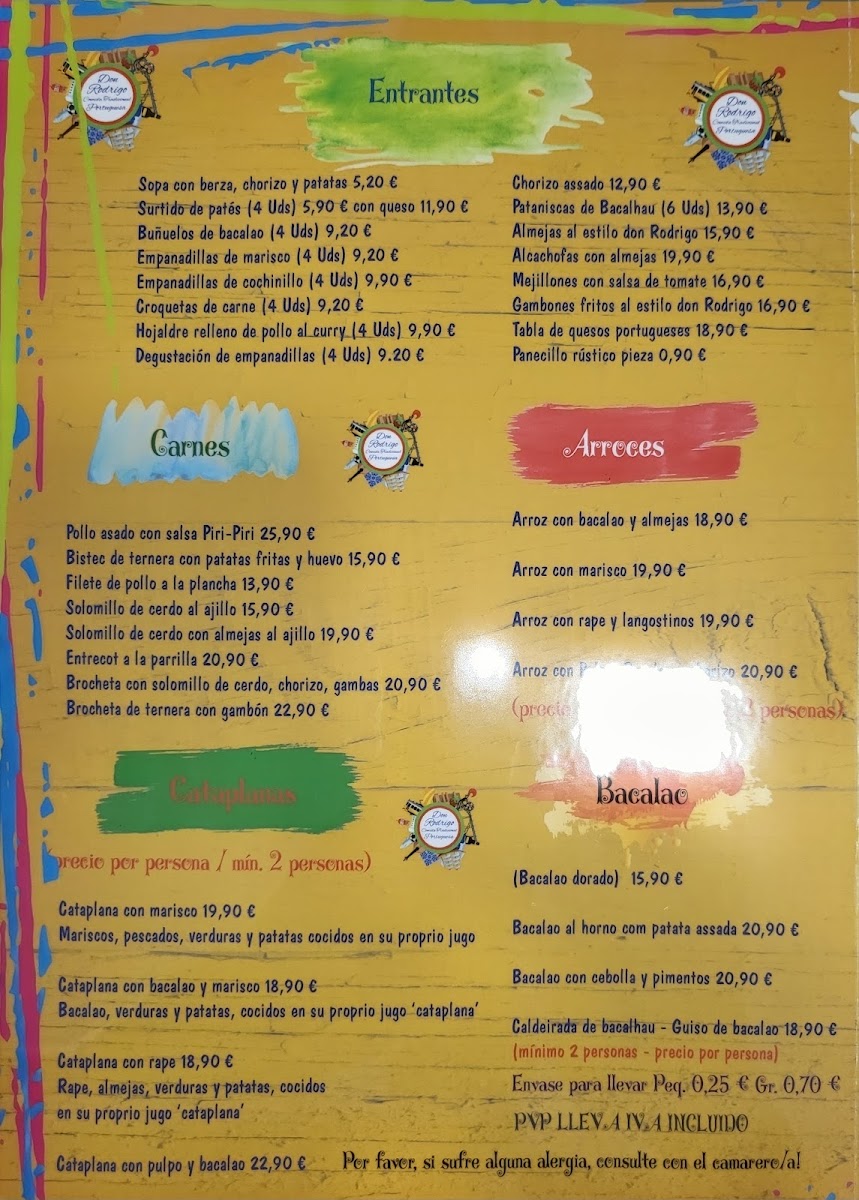 Don
Rodrigo
Comida Tradicional
Portuguesa
Entrantes
Don
Rodrigo
Comida Tradicional
Portuguesa
Sopa con berza, chorizo y patatas 5,20 €
Surtido de patés (4 Uds) 5,90 € con queso 11,90 €
Buñuelos de bacalao (4 Uds) 9,20 €
Empanadillas de marisco (4 Uds) 9,20 €
Empanadillas de cochinillo (4 Uds) 9,90 €
Croquetas de carne (4 Uds) 9,20 €
Hojaldre relleno de pollo al curry (4 Uds) 9,90 €
Degustación de empanadillas (4 Uds) 9.20 €
Chorizo assado 12,90 €
Pataniscas de Bacalhau (6 Uds) 13,90 €
Almejas al estilo don Rodrigo 15,90 €
Alcachofas con almejas 19,90 €
Mejillones con salsa de tomate 16,90 €
Gambones fritos al estilo don Rodrigo 16,90 €
Tabla de quesos portugueses 18,90 €
Panecillo rústico pieza 0,90 €
Carnes
Don
Rodrigo
Comida Tradicional
Portuguesa
Pollo asado con salsa Piri-Piri 25,90 €
Bistec de ternera con patatas fritas y huevo 15,90 €
Filete de pollo a la plancha 13,90 €
Solomillo de cerdo al ajillo 15,90 €
Solomillo de cerdo con almejas al ajillo 19,90 €
Entrecot a la parrilla 20,90 €
Brocheta con solomillo de cerdo, chorizo, gambas 20,90 €
Brocheta de ternera con gambón 22,90 €
Arroces
Arroz con bacalao y almejas 18,90 €
Arroz con marisco 19,90 €
Arroz con rape y langostinos 19,90 €
Arroz con 20,90 €
personas)
Cataplanas
Don
Rodrigo
Comida Tradicional
Portuguesa
precio por persona / mín. 2 personas)
Cataplana con marisco 19,90 €
Mariscos, pescados, verduras y patatas cocidos en su proprio jugo
Cataplana con bacalao y marisco 18,90 €
Bacalao, verduras y patatas, cocidos en su proprio jugo ‘cataplana’
Cataplana con rape 18,90 €
Rape, almejas, verduras y patatas, cocidos
en su proprio jugo ‘cataplana’
Cataplana con pulpo y bacalao 22,90 €
Bacalao
(Bacalao dorado) 15,90 €
Bacalao al horno com patata assada 20,90 €
Bacalao con cebolla y pimentos 20,90 €
Caldeirada de bacalhau - Guiso de bacalao 18,90 €
(mínimo 2 personas - precio por persona)
Envase para llevar Peq. 0,25 € Gr. 0,70 €
PVP LLEVA IVA INCLUIDO
Por favor, si sufre alguna alergia, consulte con el camarero/a!